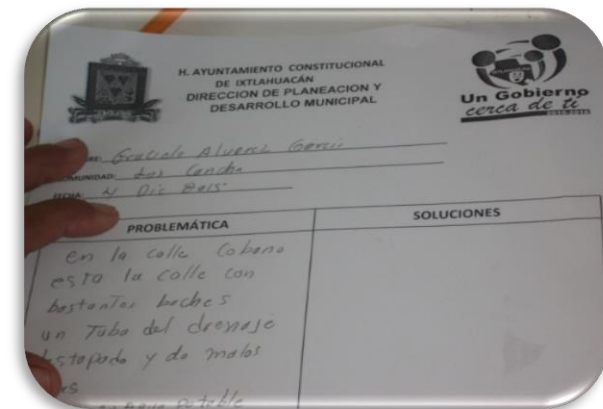 H. AYUNTAMIENTO CONSTITUCIONAL
DE IXTLAHUACÁN
DIRECCION DE PLANEACION Y
DESARROLLO MUNICIPAL
Un Gobierno
cerca de ti
Graciela Alvarez Garcia
COMUNIDAD: Las Conchas
FECHA: 4 Dic 2015
PROBLEMÁTICA
SOLUCIONES
en la calle Cobano
esta la calle con
bastantes baches
un Tubo del drenaje
destapado y da malos
Potable